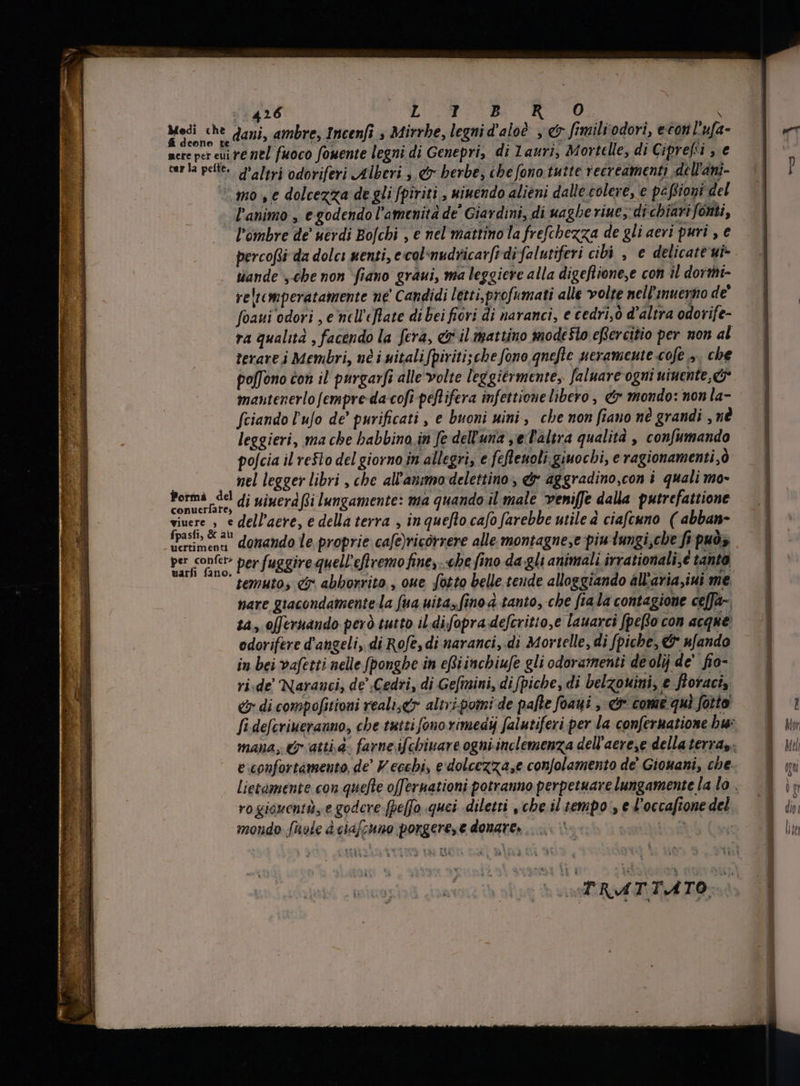 426 L I B R O
Modi che ſi deono te nere per cui tar la peste.
dani, ambre, Incenſi, Mirrhe, legni d'aloè, & ſimili odori, e con l'uſa-
re nel fuoco ſouente legni di Genepri, di Lauri, Mortelle, di Cipreſſi, e
d'altri odoriferi Alberi, & herbe, che ſono tutte recreamenti dell'ani-
mo, e dolcezza de gli ſpiriti, uiuendo alieni dalle colere, e paſſioni del
l'animo, e godendo l'amenità de' Giardini, di uaghe riue, di chiari fonti,
l'ombre de' uerdi Boſchi, e nel mattino la freſchezza de gli aeri puri, e
percoſſi da dolci uenti, e col nudricarſi di ſalutiferi cibi, e delicate ui-
uande, che non ſiano graui, ma leggiere alla digeſtione, e con il dormi-
re temperatamente ne' Candidi letti, profumati alle volte nell'inuerno de'
ſoaui odori, e nell'eſtate di bei fiori di naranci, e cedri, ò d'altra odorife-
ra qualità, facendo la ſera, & il mattino modeſto eſſercitio per non al
terare i Membri, nè i uitali ſpiriti; che ſono queſte ueramente coſe, che
poſſono con il purgarſi alle volte leggiermente, ſaluare ogni uiuente, &
mantenerlo ſempre da coſi peſtifera infettione libero, & mondo: non la-
ſciando l'uſo de' purificati, e buoni uini, che non ſiano nè grandi, nè
leggieri, ma che habbino in ſe dell'una, e l'altra qualità, conſumando
poſcia il reſto del giorno in allegri, e feſteuoli giuochi, e ragionamenti, ò
nel legger libri, che all'animo delettino, & aggradino, con i quali mo-
Forma del conuerſare, viuere, e ſpaſſi, & au uertimenti per conſer- uarſi ſano.
di uiuerà ſſi lungamente: ma quando il male veniſſe dalla putrefattione
dell'aere, e della terra, in queſto caſo farebbe utile à ciaſcuno (abban-
donando le proprie caſe) ricorrere alle montagne, e piu lungi, che ſi può,
per fuggire quell'eſtremo fine, che fino da gli animali irrationali, é tanto
temuto, & abhorrito, oue ſotto belle tende alloggiando all'aria, iui me
nare giacondamente la ſua uita, fino à tanto, che ſia la contagione ceſſa-
ta, oſſeruando però tutto il diſopra deſcritto, e lauarci ſpeſſo con acque
odorifere d'angeli, di Roſe, di naranci, di Mortelle, di ſpiche, & uſando
in bei vaſetti nelle ſponghe in eſſi inchiuſe gli odoramenti de olij de' fio-
ri de' Naranci, de' Cedri, di Geſmini, di ſpiche, di belzouini, e ſtoraci,
& di compoſitioni reali, & altri pomi de paſte ſoaui, & come quì ſotto
ſi deſcriueranno, che tutti ſono rimedij ſalutiferi per la conſeruatione hu-
mana, & atti à farne iſchiuare ogni inclemenza dell'aere, e della terra,
e confortamento de' Vecchi, e dolcezza, e conſolamento de' Giouani, che
lietamente con queſte oſſeruationi potranno perpetuare lungamente la lo
ro giouentù, e godere ſpeſſo quei diletti, che il tempo, e l'occaſione del
mondo ſuole à ciaſcuno porgere, e donare.
TRATTATO